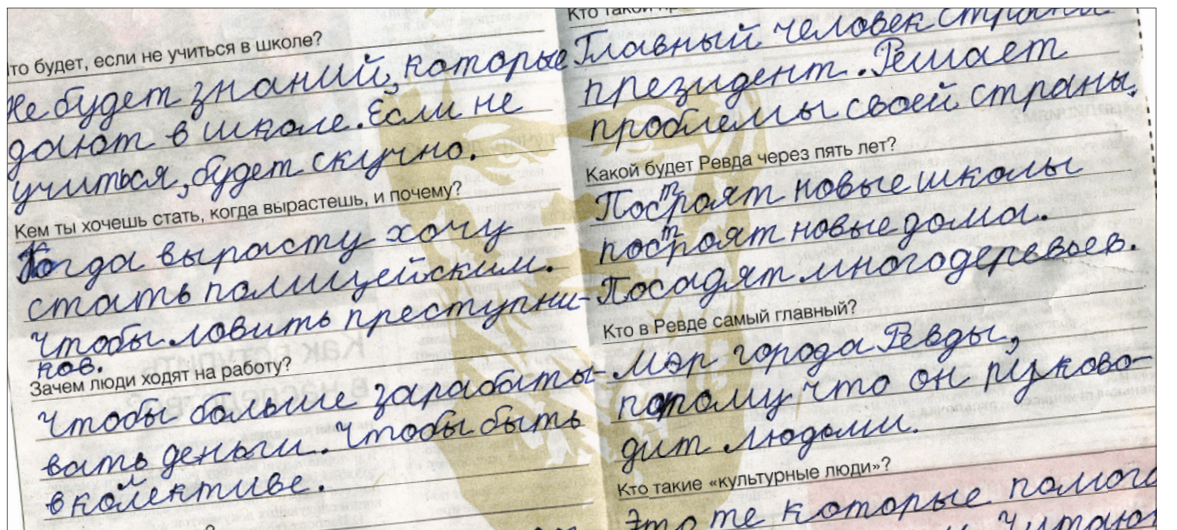 что будет, если не учиться в школе?
Не будет знаний, которые
дают в школе. Если не
учиться, будет скучно.
Кем ты хочешь стать, когда вырастешь, и почему?
Когда вырасту хочу
стать полицейским.
Чтобы ловить преступни-
ков.
Зачем люди ходят на работу?
Чтобы больше зарабаты-
вать деньги. Чтобы быть
в колективе.
Кто такой
Главный человек страны
президент. Решает
проблемы своей страны.
Какой будет Ревда через пять лет?
Построят новые школы
построят новые дома.
Посадят много деревьев.
Кто в Ревде самый главный?
Мэр города Ревды,
потому что он руково-
дит людьми.
Кто такие «культурные люди»?
Это те которые помога
Читают